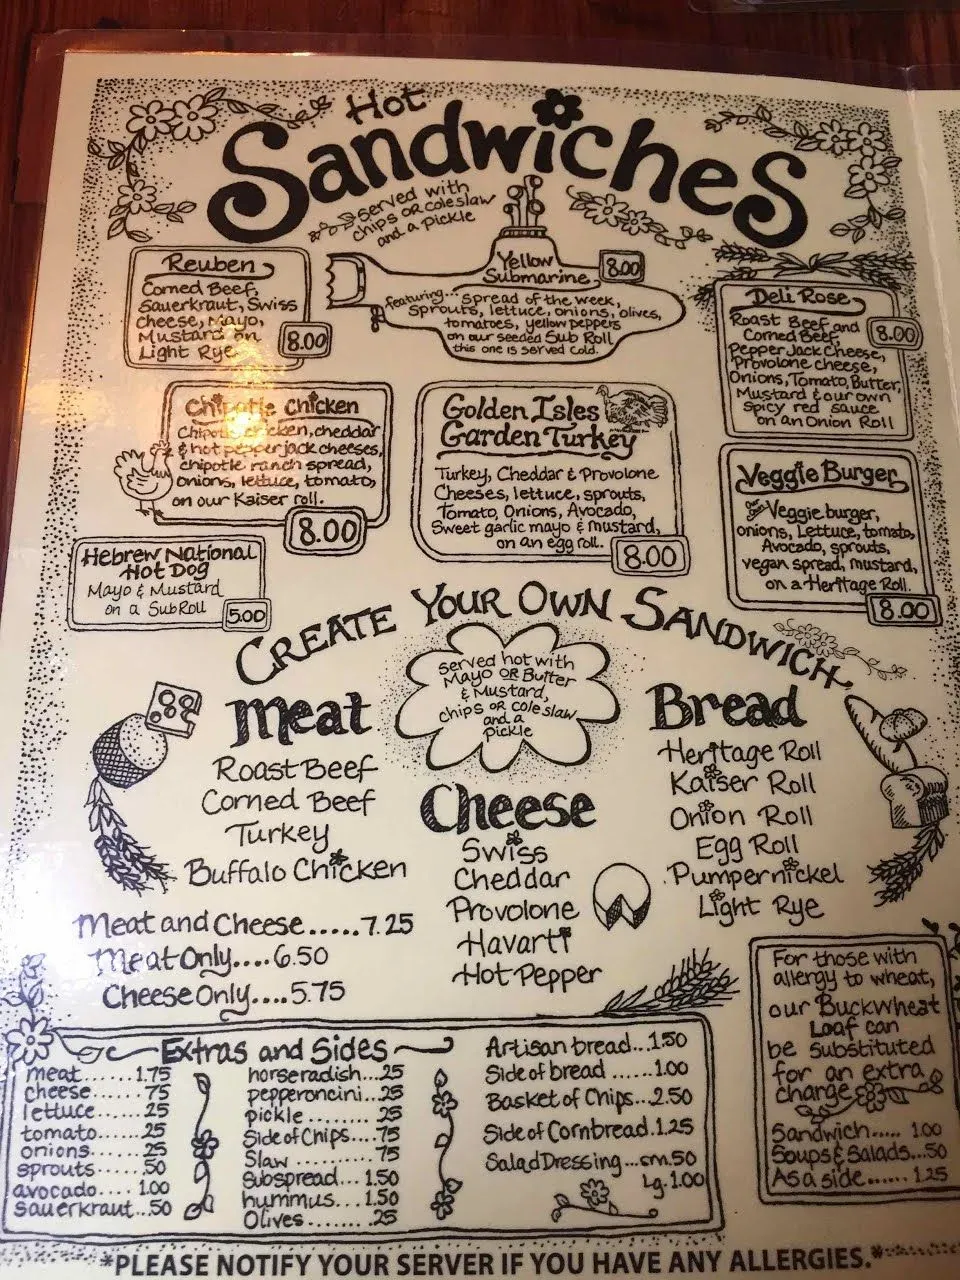 Hot
Sandwiches
served with
chips or coleslaw
and a pickle
Reuben
Corned Beef,
Sauerkraut, Swiss
Cheese, Mayo,
Mustard on
Light Rye.
8.00
Yellow
Submarine
8.00
featuring... spread of the week,
sprouts, lettuce, onions, olives,
tomatoes, yellow peppers
on our seeded Sub Roll
this one is served cold.
Deli Rose
Roast Beef and
Corned Beef,
Pepper Jack Cheese,
Provolone cheese,
Onions, Tomato, Butter,
Mustard & our own
spicy red sauce
on an Onion Roll
8.00
Chipotle Chicken
Chipotle chicken, cheddar
& hot pepper jack cheeses,
chipotle ranch spread,
onions, lettuce, tomato,
on our Kaiser roll.
8.00
Golden Isles
Garden Turkey
Turkey, Cheddar & Provolone
Cheeses, lettuce, sprouts,
Tomato, Onions, Avocado,
Sweet garlic mayo & mustard,
on an egg roll.
8.00
Veggie Burger
Veggie burger,
onions, Lettuce, tomato,
Avocado, sprouts,
vegan spread, mustard,
on a Heritage Roll.
8.00
Hebrew National
Hot Dog
Mayo & Mustard
on a Sub Roll
5.00
Create Your Own Sandwich
served hot with
Mayo or Butter
& Mustard,
chips or cole slaw
and a
pickle
Meat
Roast Beef
Corned Beef
Turkey
Buffalo Chicken
Cheese
Swiss
Cheddar
Provolone
Havarti
Hot Pepper
Bread
Heritage Roll
Kaiser Roll
Onion Roll
Egg Roll
Pumpernickel
Light Rye
Meat and Cheese......7.25
Meat Only....6.50
Cheese Only....5.75
Extras and Sides
meat......1.75
cheese......75
lettuce......25
tomato......25
onions......25
sprouts.....50
avocado....1.00
sauerkraut...50
horseradish...25
pepperoncini...25
pickle......25
Side of Chips....75
Slaw..........75
Subspread...1.50
hummus...1.50
Olives.......25
Artisan bread...1.50
Side of bread......1.00
Basket of Chips...2.50
Side of Cornbread.1.25
Salad Dressing...sm.50
Lg.1.00
For those with
allergy to wheat,
our Buckwheat
Loaf can
be substituted
for an extra
charge
Sandwich..... 1.00
Soups & Salads...50
As a side...... 1.25
*PLEASE NOTIFY YOUR SERVER IF YOU HAVE ANY ALLERGIES.*